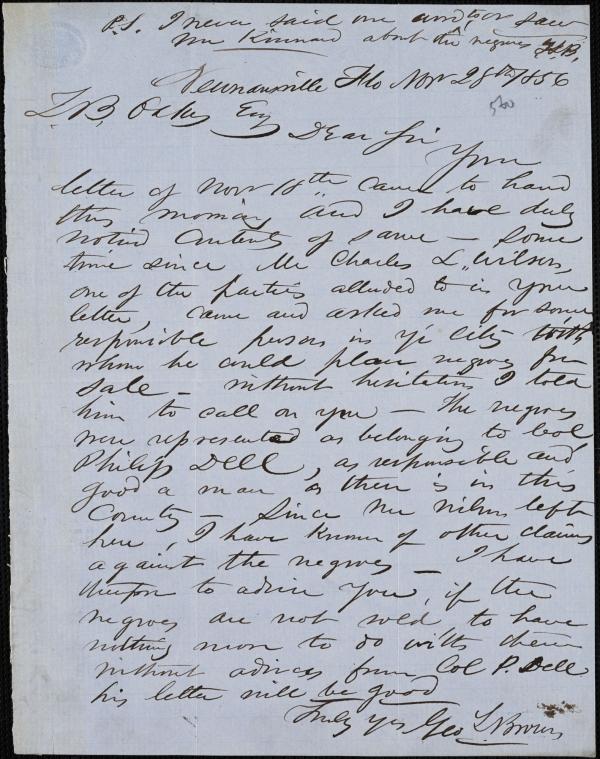 P.S. I never said one word to or saw
Mr Kinnard about the negroes G.B.
Newnansville Flo Nov 28th 1856
Z. B. Oakes Esq
Dear Sir Your
letter of Nov 18th came to hand
this morning and I have duly
noticd Contents of same — Some
time since Mr Charles L. Wilson,
one of the parties alluded to in your
letter, came and asked me for some
responsible person in ye City with
whom he could place negroes for
sale — without hesitation I told
him to call on you — The negroes
were represented as belonging to Col
Philip Dell, as responsible and
good a man as there is in this
County — Since Mr Wilson left
here, I have known of other claims
against the negroes — I have
therefore to advise you, if the
negroes are not sold, to have
nothing more to do with them
without advices from Col P. Dell
his letter will be good
Truly Yrs Geo L. Brown